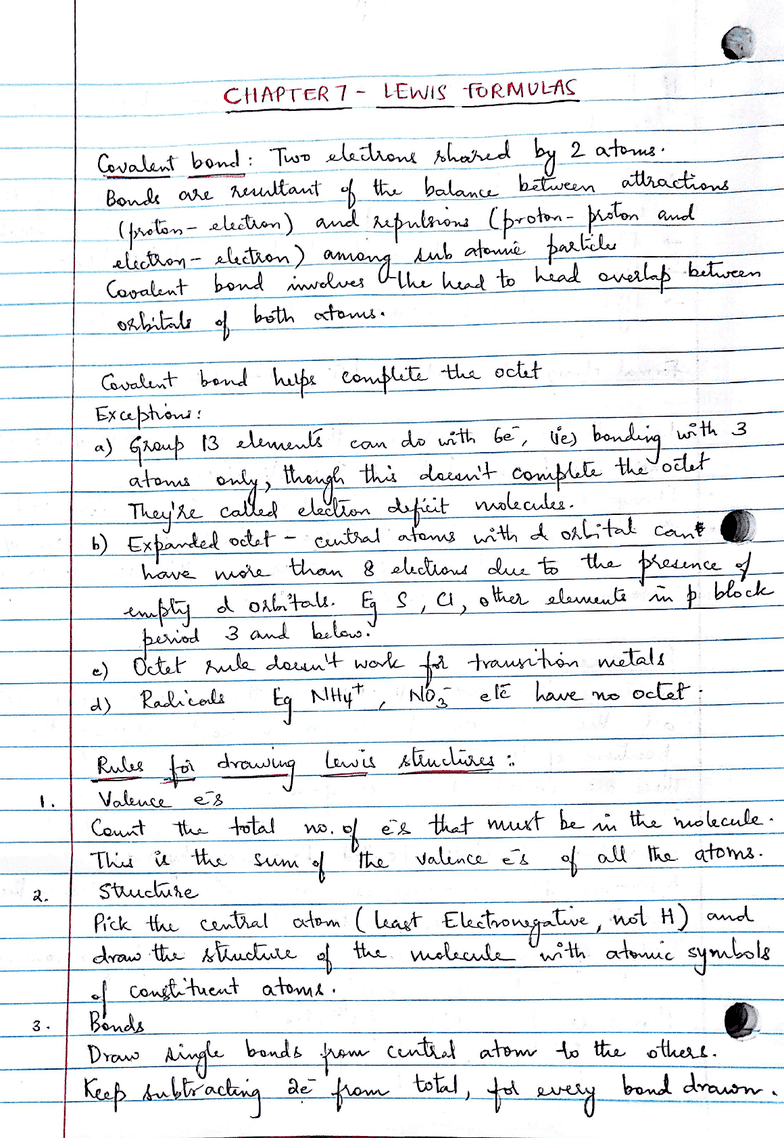 CHAPTER 7 - LEWIS FORMULAS
Covalent bond: Two electrons shared by 2 atoms.
Bonds are resultant of the balance between attractions
(proton - electron) and repulsions (proton - proton and
electron - electron) among sub atomic particle
Covalent bond involves the head to head overlap between
orbitals of both atoms.
Covalent bond helps complete the octet
Exceptions:
a) Group 13 elements can do with 6e⁻, (ie) bonding with 3
atoms only, though this doesn't complete the octet
They're called electron deficit molecules.
b) Expanded octet - central atoms with d orbital can
have more than 8 electrons due to the presence of
empty d orbitals. Eg S, Cl, other elements in p block
period 3 and below.
c) Octet rule doesn't work for transition metals
d) Radicals Eg NH4⁺, NO3⁻ etc have no octet.
Rules for drawing Lewis structures:.
1. Valence e⁻s
Count the total no. of e⁻s that must be in the molecule.
This is the sum of the valence e⁻s of all the atoms.
2. Structure
Pick the central atom (least Electronegative, not H) and
draw the structure of the molecule with atomic symbols
of constituent atoms.
3. Bonds
Draw single bonds from central atom to the others.
Keep subtracting 2e⁻ from total, for every bond drawn.